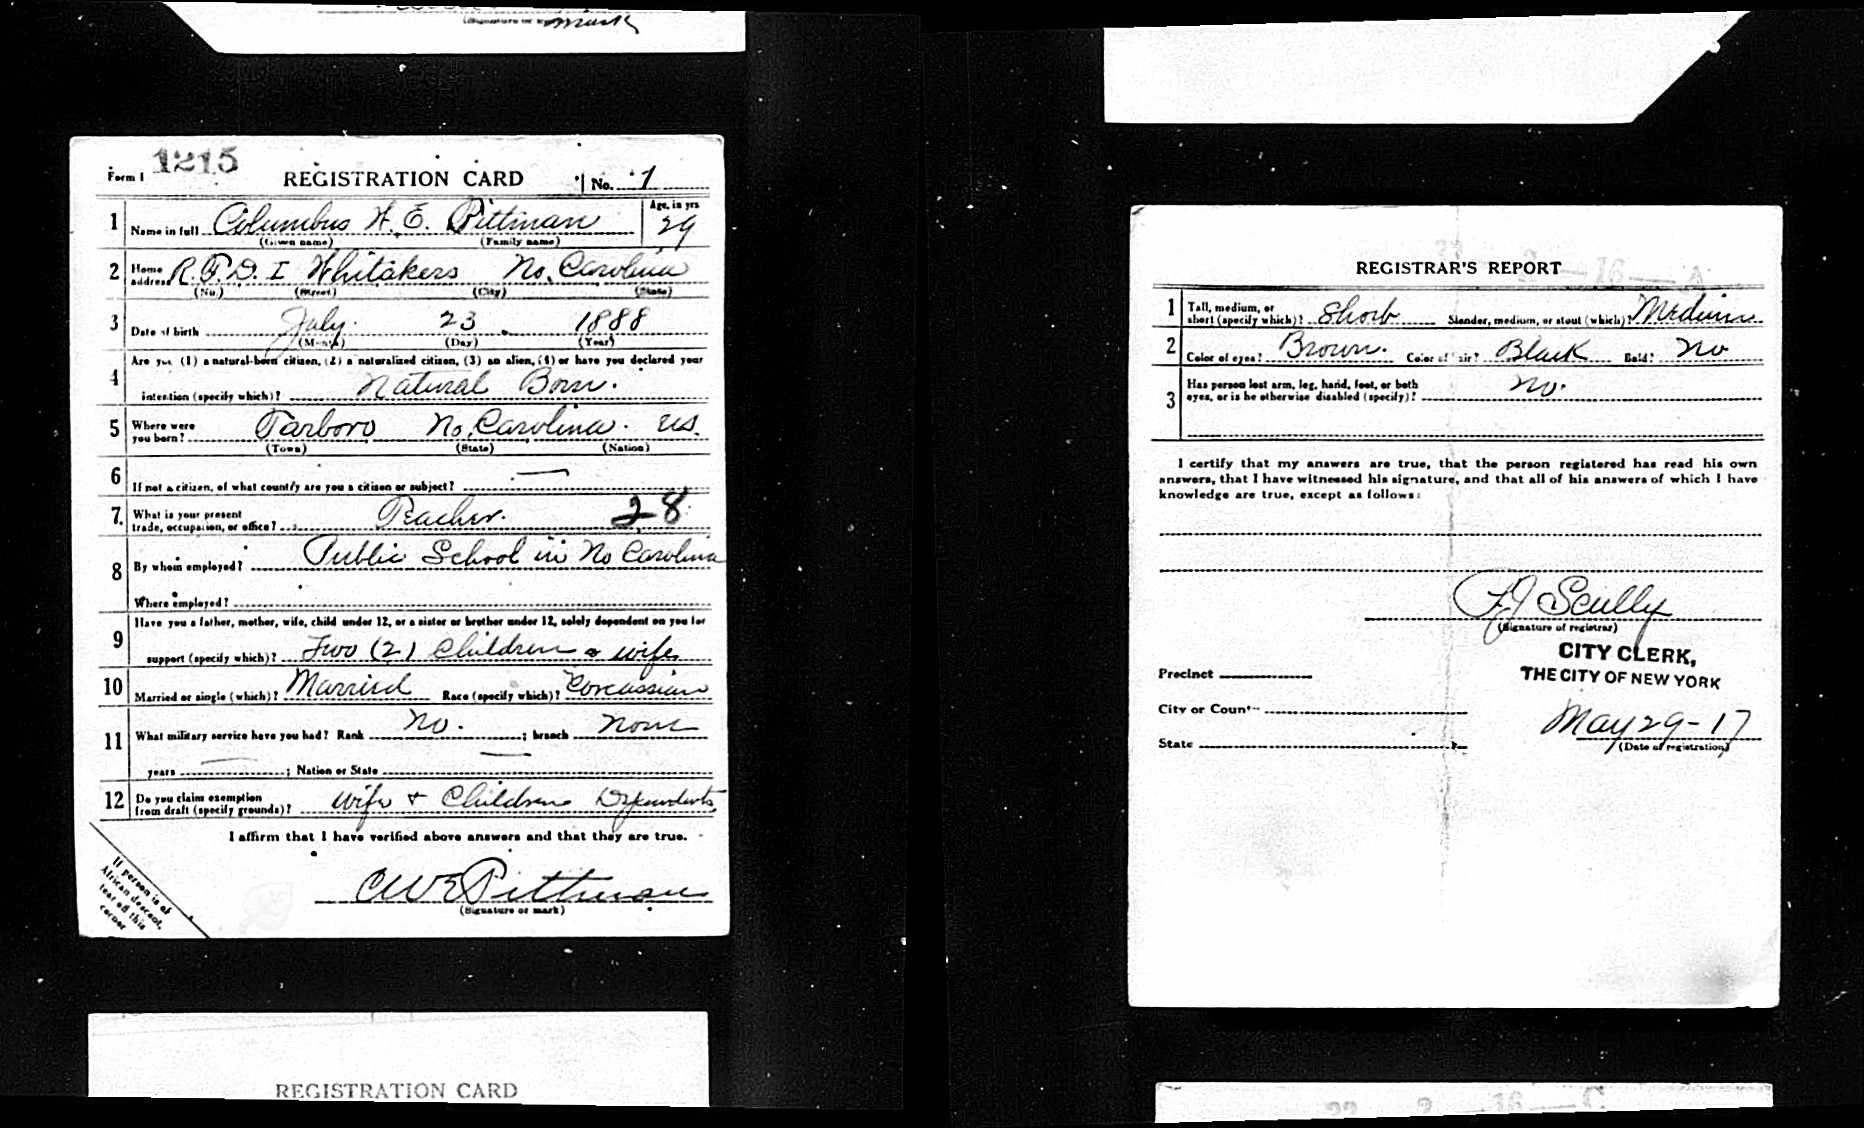 (Signature or mark)
mark
Form 1 1215 REGISTRATION CARD No. 1
1 Name in full Columbus W. E. Pittman Age, in yrs 29
(Given name) (Family name)
2 Home address R.F.D. I Whitakers No. Carolina
(No.) (Street) (City) (State)
3 Date of birth July 23 1888
(Month) (Day) (Year)
4 Are you (1) a natural-born citizen, (2) a naturalized citizen, (3) an alien, (4) or have you declared your
intention (specify which)? Natural Born.
5 Where were you born? Tarboro No. Carolina. US.
(Town) (State) (Nation)
6 If not a citizen, of what country are you a citizen or subject? —
7. What is your present trade, occupation, or office? Teacher. 28
8 By whom employed? Public School in No Carolina
Where employed?
9 Have you a father, mother, wife, child under 12, or a sister or brother under 12, solely dependent on you for
support (specify which)? Two (2) Children & wife
10 Married or single (which)? Married Race (specify which)? Corcassian
11 What military service have you had? Rank No. ; branch None
years — ; Nation or State —
12 Do you claim exemption from draft (specify grounds)? Wife + Children Dependents
I affirm that I have verified above answers and that they are true.
CWE Pittman
(Signature or mark)
If person is of
African descent,
tear off this
corner
REGISTRATION CARD
16 A
REGISTRAR'S REPORT
1 Tall, medium, or short (specify which)? Short Slender, medium, or stout (which)? Medium
2 Color of eyes? Brown. Color of hair? Black Bald? No
3 Has person lost arm, leg, hand, foot, or both
eyes, or is he otherwise disabled (specify)? No.
I certify that my answers are true, that the person registered has read his own
answers, that I have witnessed his signature, and that all of his answers of which I have
knowledge are true, except as follows:
F J Scully
(Signature of registrar)
CITY CLERK,
THE CITY OF NEW YORK
Precinct
City or County
May 29-17
State (Date of registration)